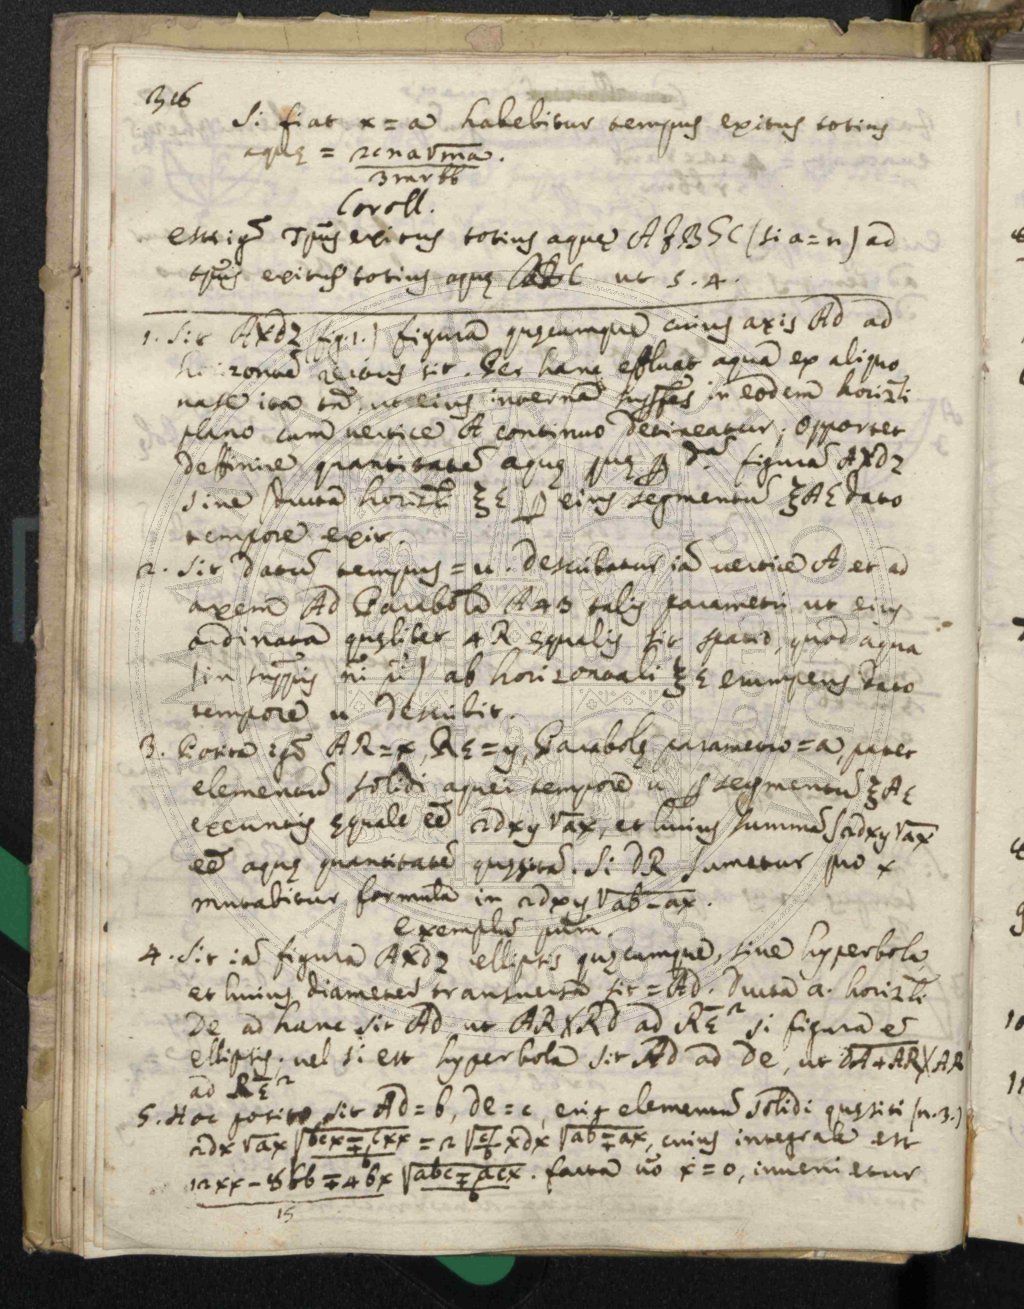 316
Si fiat x = a habebitur tempus exitus totius
aquę = 2cna√ma.
3mrbb
Coroll.
est igr̄ Tpus exitus totius aquę (si a = n) ad
tpus exitus totius aquę ut 5. 4.
1. Sit AXdZ (fig. 1.) figura quęcumque cuius axis Ad ad
horizontē rectus sit. Per hanc effluat aqua ex aliquo
vase ita tn̄, ut eius interna suprfes in eodem horiztli
plano cum vertice A continuo detineatur; Opportet
deffinire quantitatē aquę, quę p dā figurā AXdZ
sive ducta horiztli ξε p eius segmentū ξAε dato
tempore exit.
2. Sit datū tempus = u. describatur iā vertice A et ad
axem Ad Parabola A43 talis parametri ut eius
ordinata quęlibet 4R equalis sit spatio, quod aqua
ab horizontali ξε erumpens dato
tempore u describit.
3. Posita igr̄ AR = x, Rε = y, Parabolę parametro = a, patet
elementū solidi aquei tempore u p segmentū ξAε
exeuntis ęquale eē 2dxy√ax, et huius summā ∫2dxy√ax
eē aquę quantitatē quęsitā. Si dR sumetur pro x
mutabitur formula in 2dxy√ab-ax.
Exemplū pum.
4. Sit iā figura AXdZ ellipsis quęcumque, sive hyperbola,
et huius diameter transversa sit = Ad. Ducta a. horiztli
De ad hanc sit Ad, ut AR X Rd ad Rε² si figura ē
ellipsis, vel si est hyperbola sit Ad ad De, ut dA+AR X AR
ad Rε²
5. Hoc posito, sit Ad = b, de = c, erit elementū solidi quęsiti (n. 3.)
2dx√ax√bcx∓cxx = 2√c/b xdx√ab∓ax, cuius integrale est
12xx-8bb∓4bx √abc∓acx. facta v̄o x = 0, invenietur
15 b